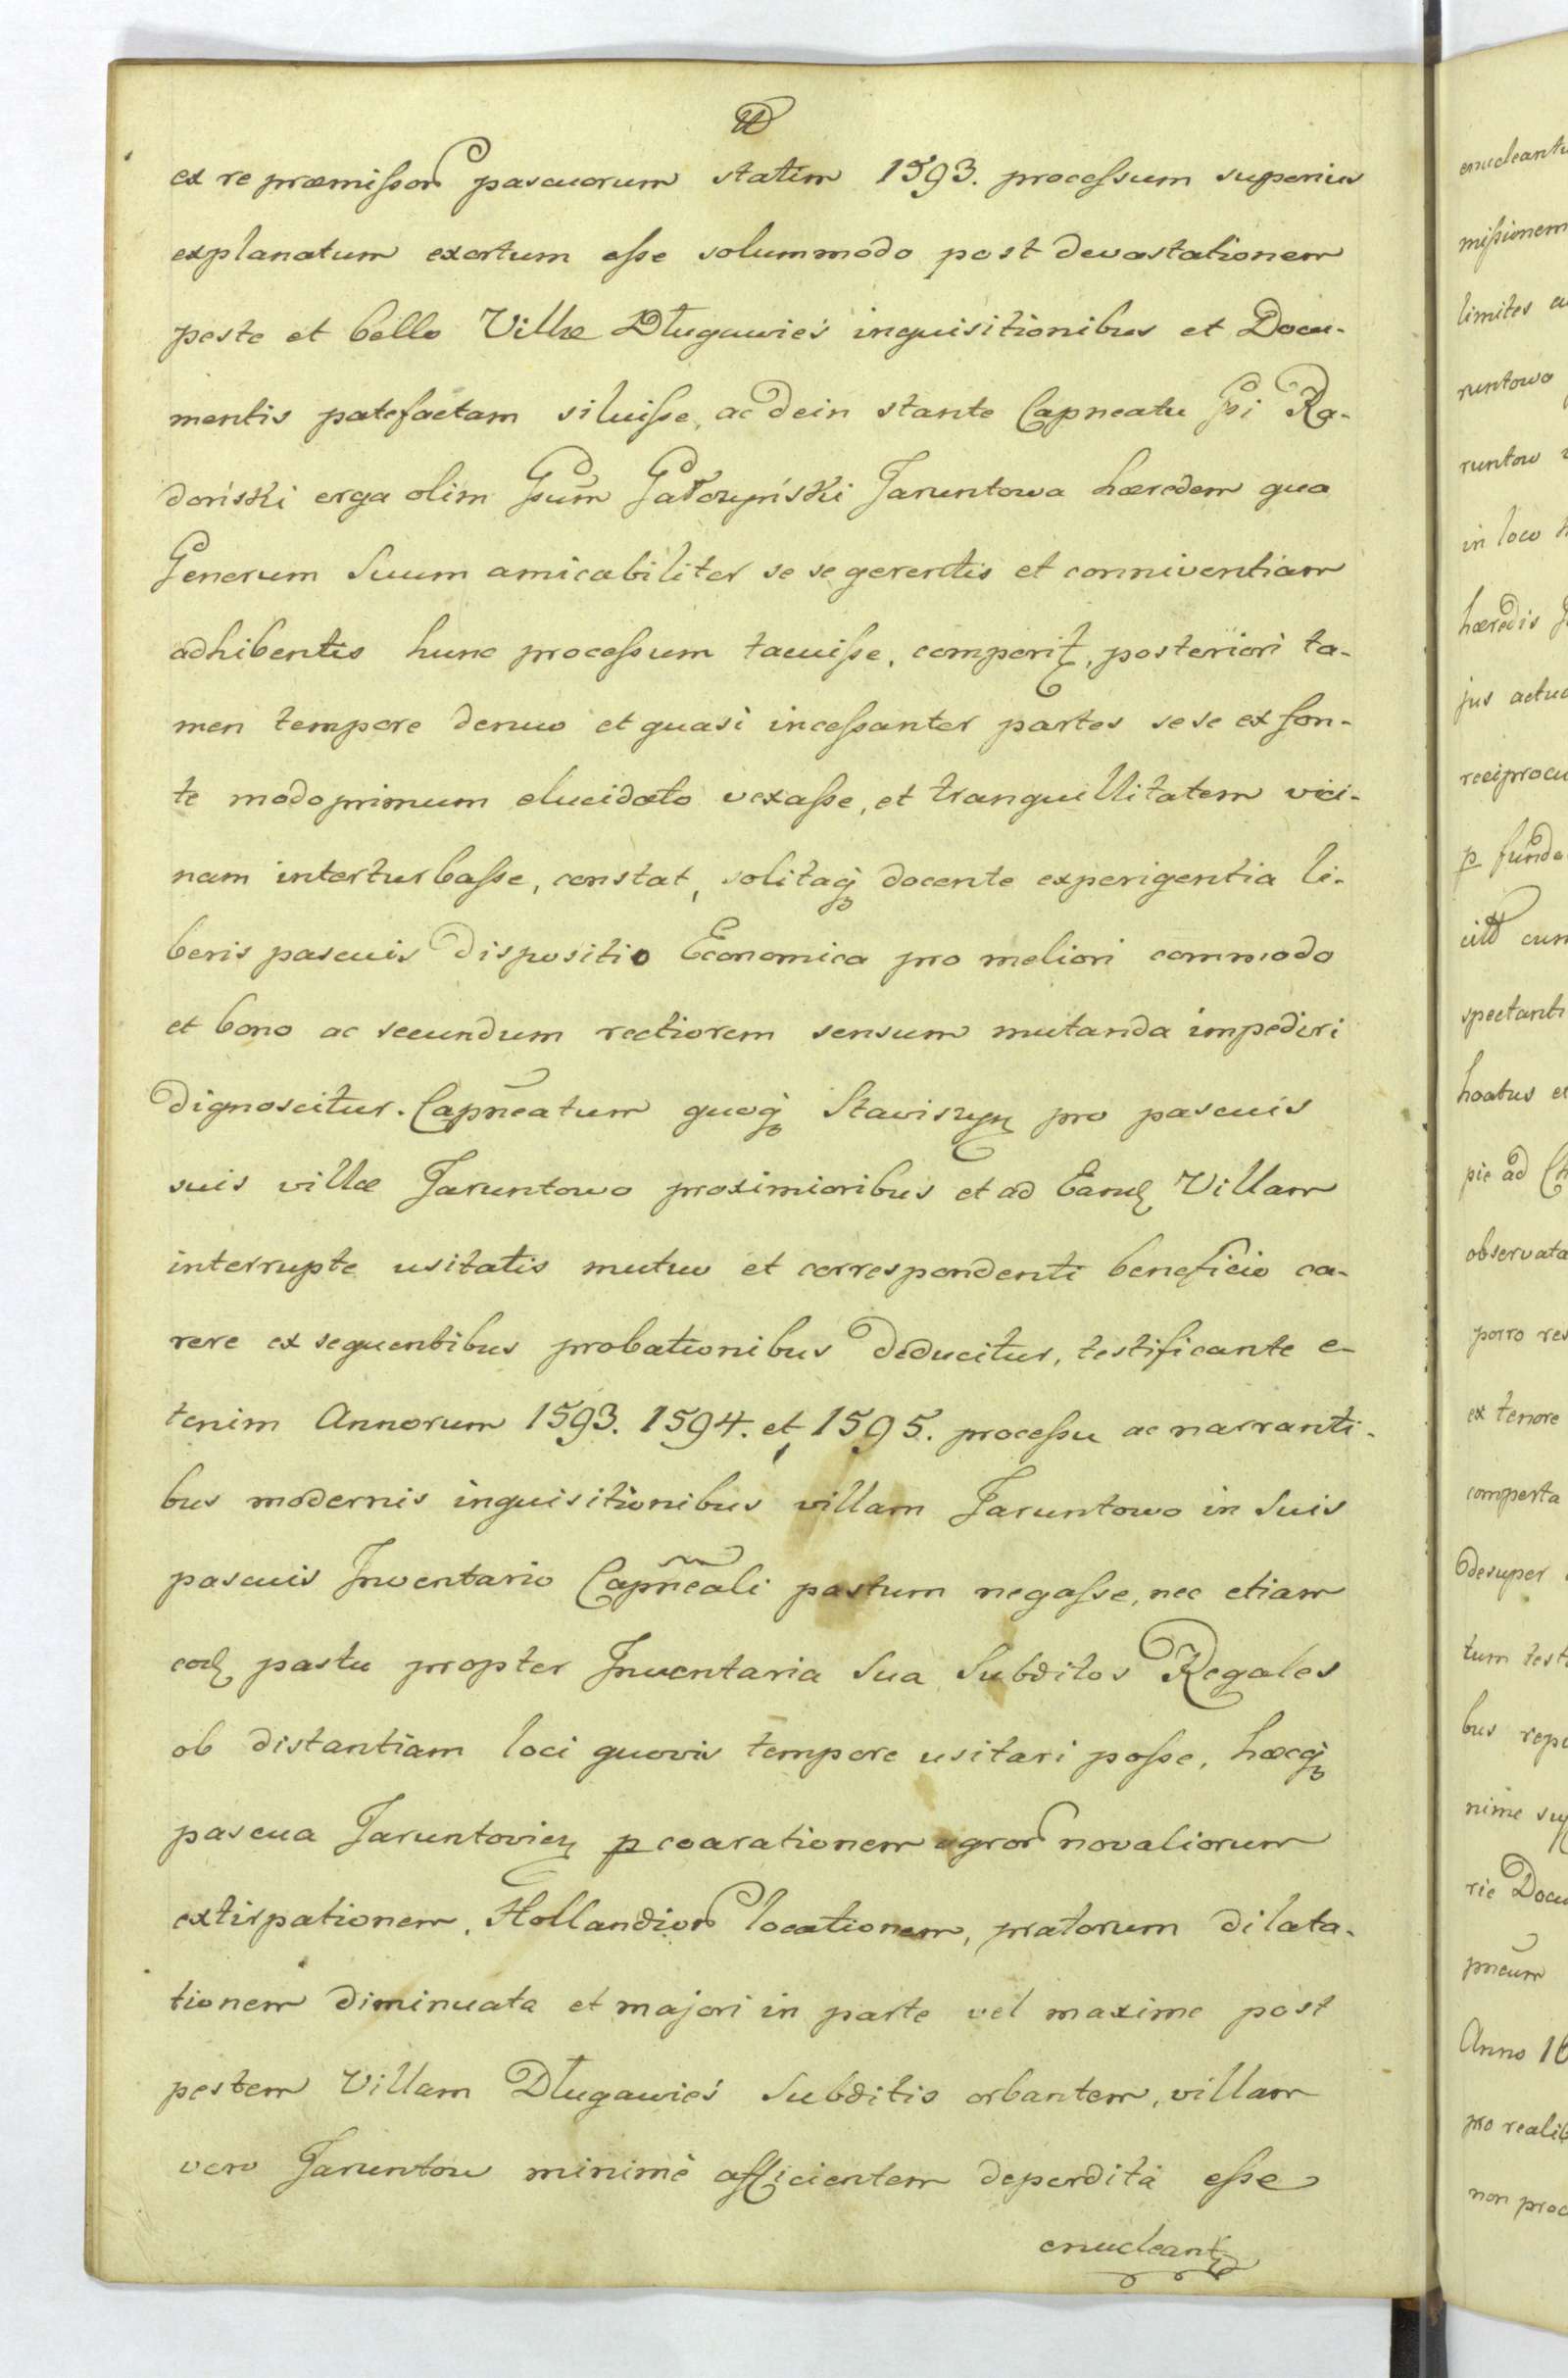 ex re præmissor pascuorum statim 1593. processum superius
explanatum exortum esse solummodo post devastationem
peste et bello Villæ Długawieś inquisitionibus et Docu-
mentis patefactam siluisse, ac dein stante Capneatu Gsi Ra-
doński erga olim Gsum Gałczyński Jaruntowa hæredem qua
Generum Suum amicabiliter se se gerentis et conniventiam
adhibentis hunc processum tacuisse, comperit, posteriori ta-
men tempore denuo et quasi incessanter partes se se ex fon-
te modo primum elucidato vexasse, et tranquillitatem vici-
nam interturbasse, constat, solitaq docente experigentia li-
beris pascuis dispositio Economica pro meliori commodo
et bono ac secundum rectiorem sensum mutanda impediri
dignoscitur. Capneatum quoq Stawiszyn pro pascuis
suis villæ Jaruntowo proximioribus et ad Eand Villam
interrupte usitatis mutuo et correspondenti beneficio ca-
rere ex sequentibus probationibus deducitur, testificante e-
tenim Annorum 1593. 1594. et 1595. processu ac narranti-
bus modernis inquisitionibus villam Jaruntowo in Suis
pascuis Inventario Capneali pastum negasse, nec etiam
eod pastu propter Inventaria Sua Subditos Regales
ob distantiam loci quovis tempore usitari posse, hæcq
pascua Jaruntovien p coarationem agror novaliorum
extirpationem, Hollandior locationem, pratorum dilata-
tionem diminuata et majori in parte vel maxime post
pestem Villam Długawieś Subditis orbantem, villam
vero Jaruntow minimè afficientem deperdita esse
enucleant
enucleant
missionem
limites
runtowo
runtow
in loco
hæredis
jus
reciprocu
p funda
cum
spectanti
hoatus et
pie ad
observata
porro res
ex tenore
comperta
desuper
tum test
bus
nime
rie Docu
pneum
Anno 16
pro
non proc